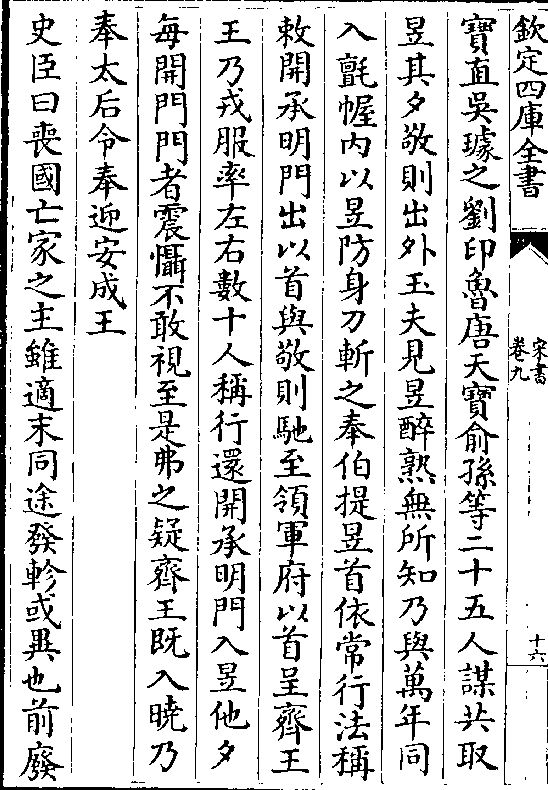 欽定四庫全書
宋書
卷九
十六
寶直吳璩之劉印魯唐天寶俞孫等二十五人謀共取
昱其夕敬則出外玉夫見昱醉熟無所知乃與萬年同
入氊幄内以昱防身刀斬之奉伯提昱首依常行法稱
敕開承明門出以首與敬則馳至領軍府以首呈齊王
王乃戎服率左右數十人稱行還開承明門入昱他夕
每開門門者震懾不敢視至是弗之疑齊王既入曉乃
奉太后令奉迎安成王
史臣曰喪國亡家之主雖適末同途發軫或異也前廢